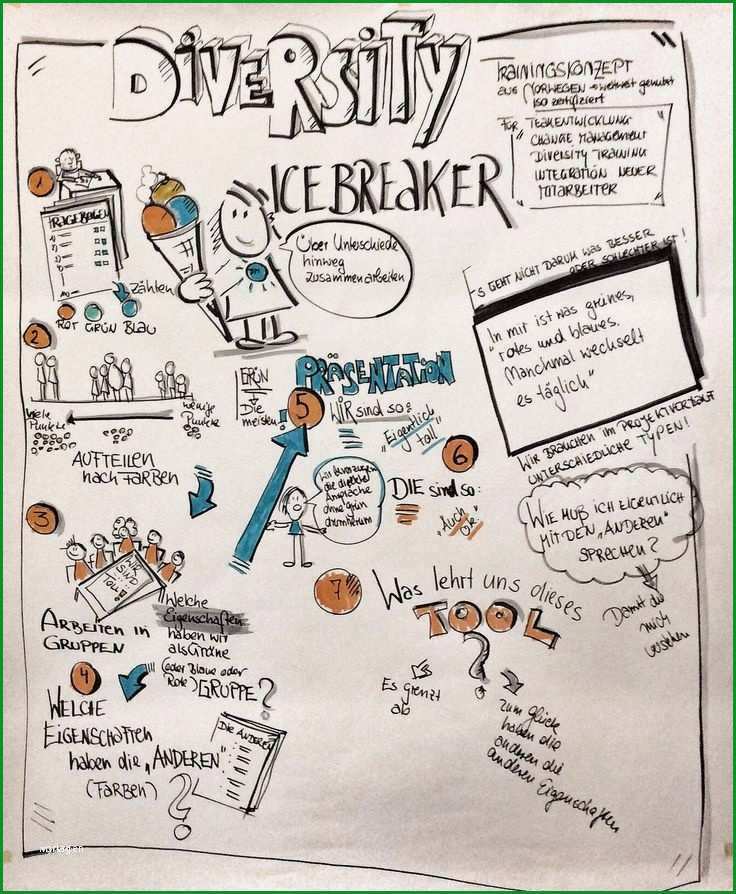 DIVERSITY
ICEBREAKER
TRAININGSKONZEPT
AUS NORWEGEN → weltweit genutzt
ISO zertifiziert
FÜR TEAMENTWICKLUNG
CHANGE MANAGEMENT
DIVERSITY TRAINING
INTEGRATION NEUER
MITARBEITER
1
FRAGEBOGEN
Zählen
ROT GRÜN BLAU
Über Unterschiede
hinweg
zusammenarbeiten
ES GEHT NICHT DARUM WAS BESSER
ODER SCHLECHTER IST!
In mir ist was grünes,
"rotes und blaues.
Manchmal wechselt
es täglich"
WIR BRAUCHEN IM PROJEKTVERLAUF
UNTERSCHIEDLICHE TYPEN!
WIE MUß ICH EIGENTLICH
MIT DEN "ANDEREN"
SPRECHEN?
Damit die
mich
verstehen
2
viele
Punkte
wenige
Punkte
AUFTEILEN
nach FARBEN
3
WIR
SIND
TOLL!
ARBEITEN IN
GRUPPEN
Welche
Eigenschaften
haben wir
als Grüne
(oder Blaue oder
Rote) GRUPPE?
4
WELCHE
EIGENSCHAFTEN
haben die „ANDEREN"
(FARBEN)
?
Die Anderen
GRÜN
Die
meisten!
PRÄSENTATION
5
WIR sind so:
"Eigentlich
toll"
wir bevorzugen
die direkte
Ansprache
ohne grün
6
DIE sind so:
"Auch
OK"
7
Was lehrt uns dieses
TOOL
?
Es grenzt
ab
zum Glück
haben die
anderen die
anderen Eigenschaften